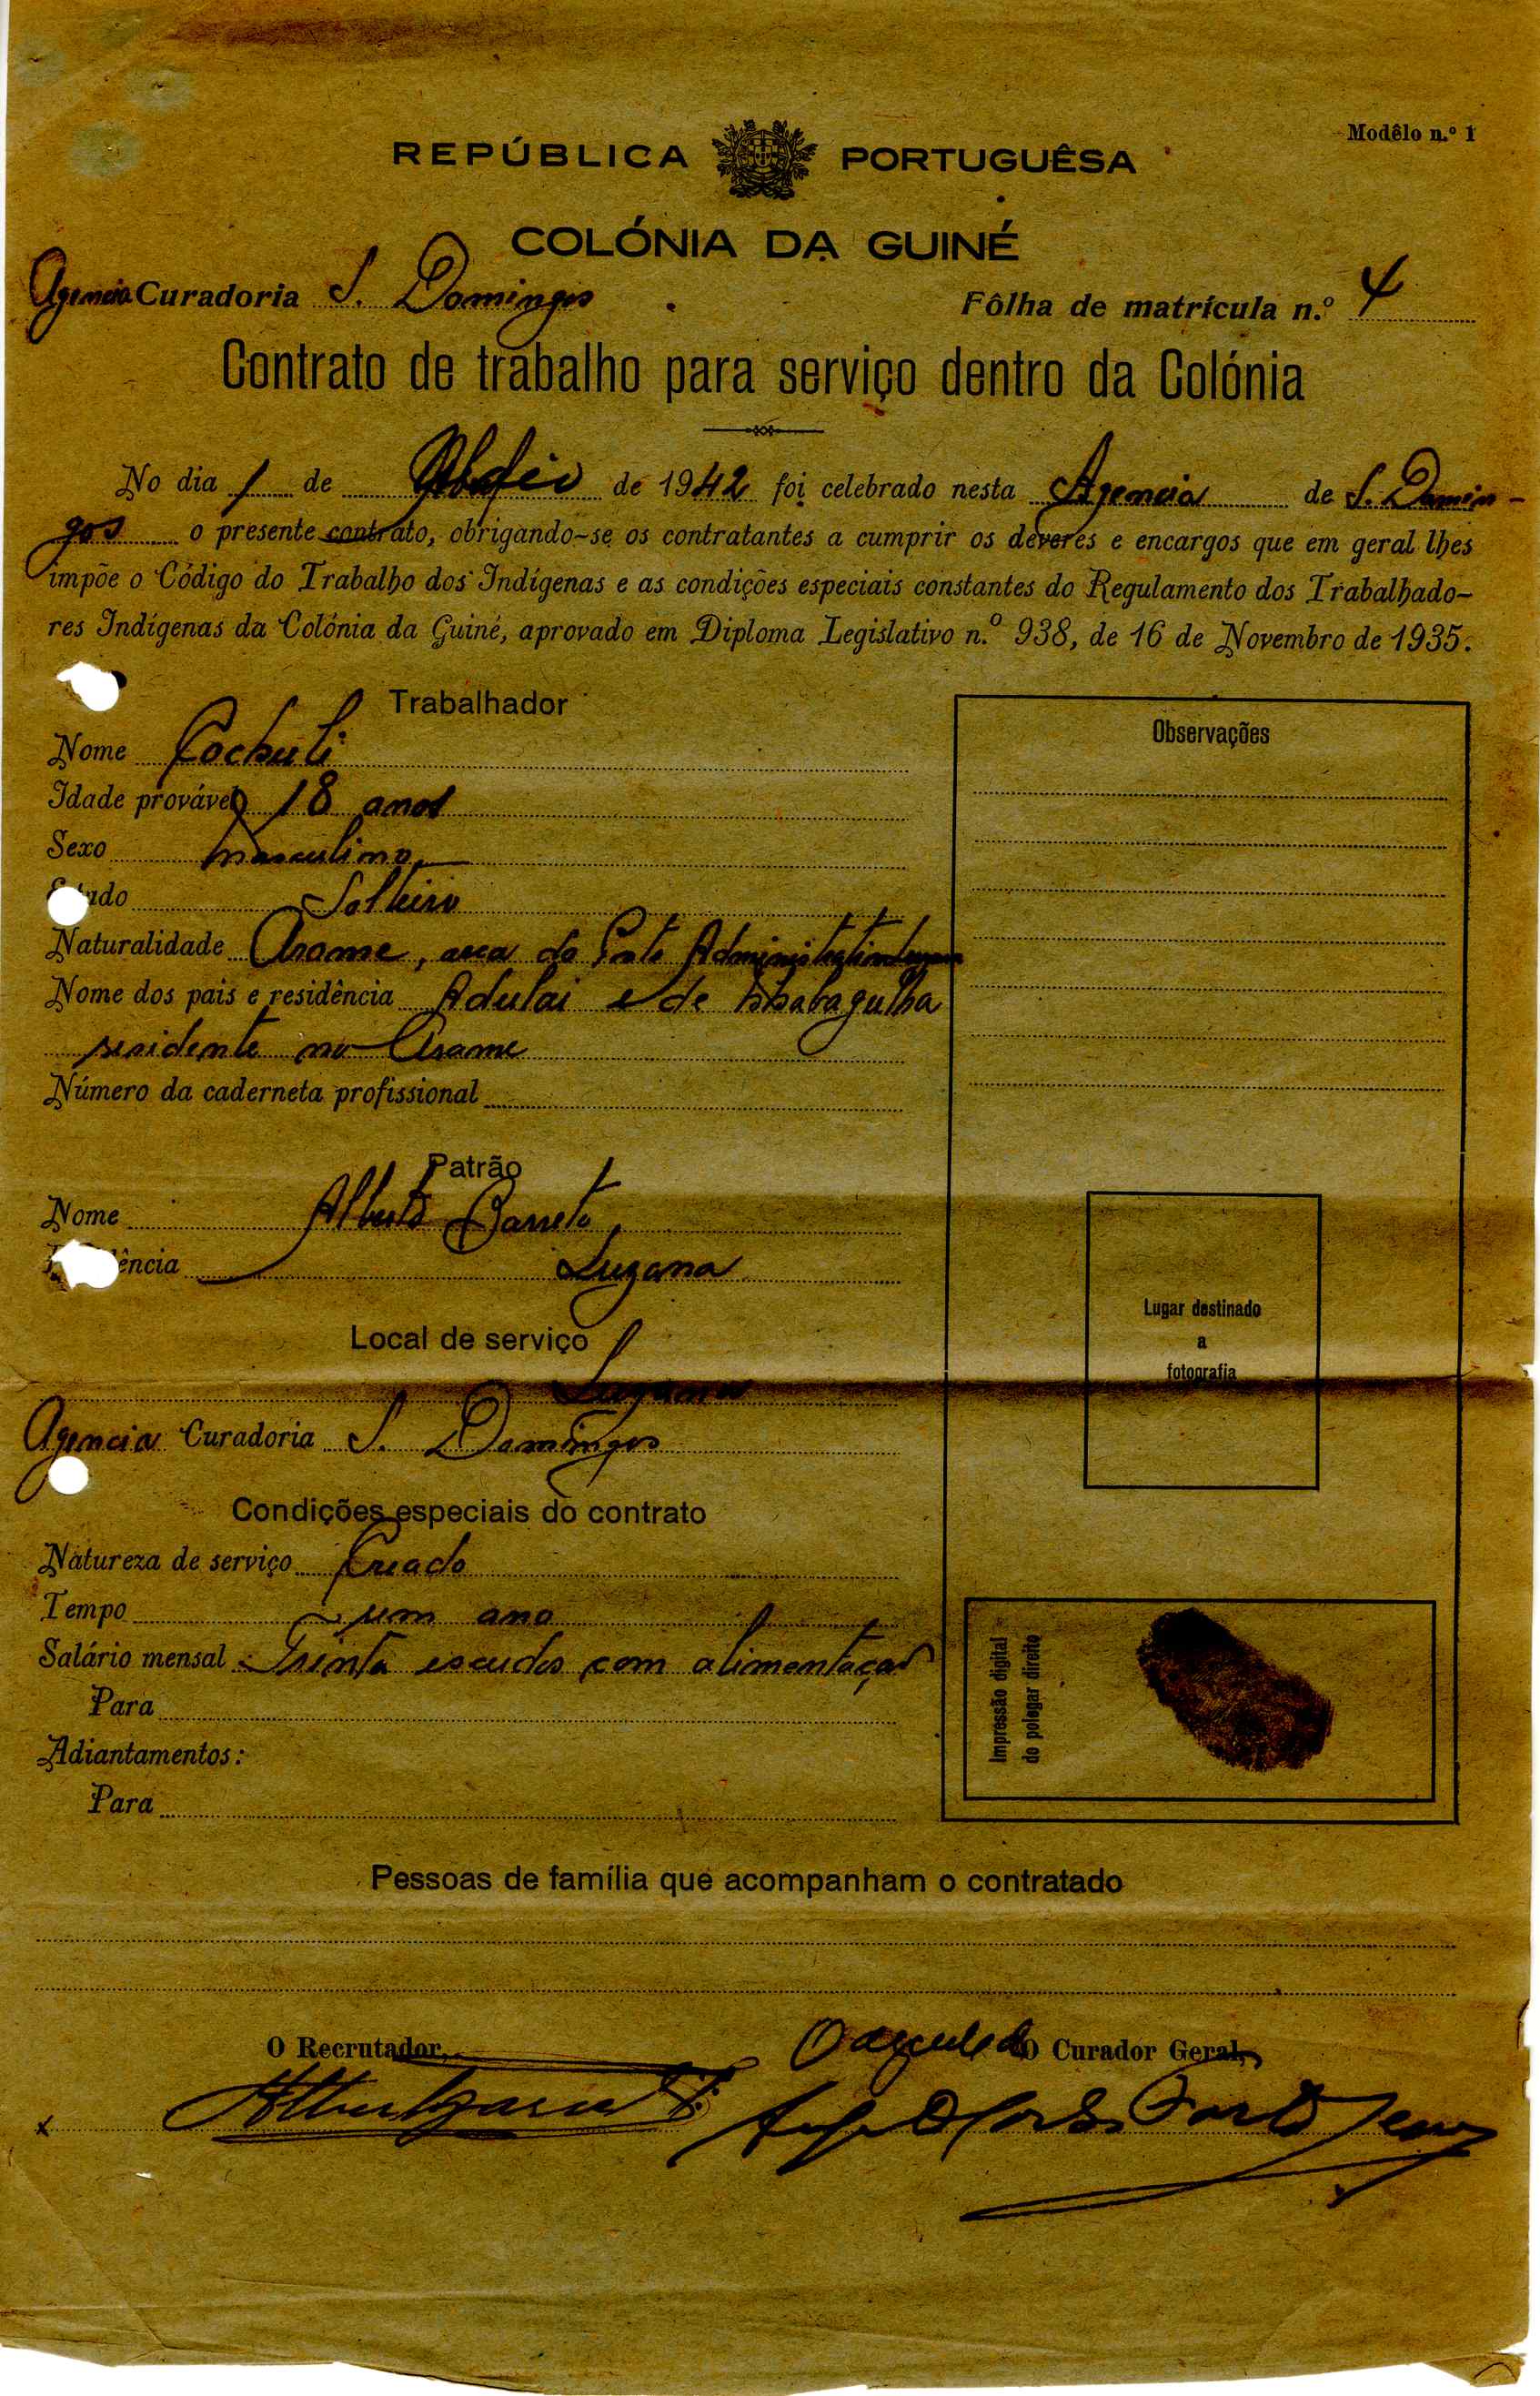 Modêlo n.º 1
REPÚBLICA PORTUGUÊSA
COLÓNIA DA GUINÉ
Agencia Curadoria S. Domingos Fôlha de matrícula n.º 4
Contrato de trabalho para serviço dentro da Colónia
No dia 1 de de 1942 foi celebrado nesta Agencia de S. Domin-
gos o presente contrato, obrigando-se os contratantes a cumprir os deveres e encargos que em geral lhes
impõe o Código do Trabalho dos Indígenas e as condições especiais constantes do Regulamento dos Trabalhado-
res Indígenas da Colónia da Guiné, aprovado em Diploma Legislativo n.º 938, de 16 de Novembro de 1935.
Trabalhador
Observações
Nome Cochuli
Idade provável 18 anos
Sexo masculino
Estado Solteiro
Naturalidade Arame, area do Posto
Nome dos pais e residência Adulai e de
residente no Arame
Número da caderneta profissional
Patrão
Nome Alberto Barreto
ência Suzana
Lugar destinado
a
fotografia
Local de serviço
Suzana
Agencia Curadoria S. Domingos
Condições especiais do contrato
Natureza de serviço Creado
Tempo um ano
Salário mensal Trinta escudos com alimentação
Para
Adiantamentos:
Para
Impressão digital
do polegar direito
Pessoas de família que acompanham o contratado
O Recrutador, O Curador Geral,